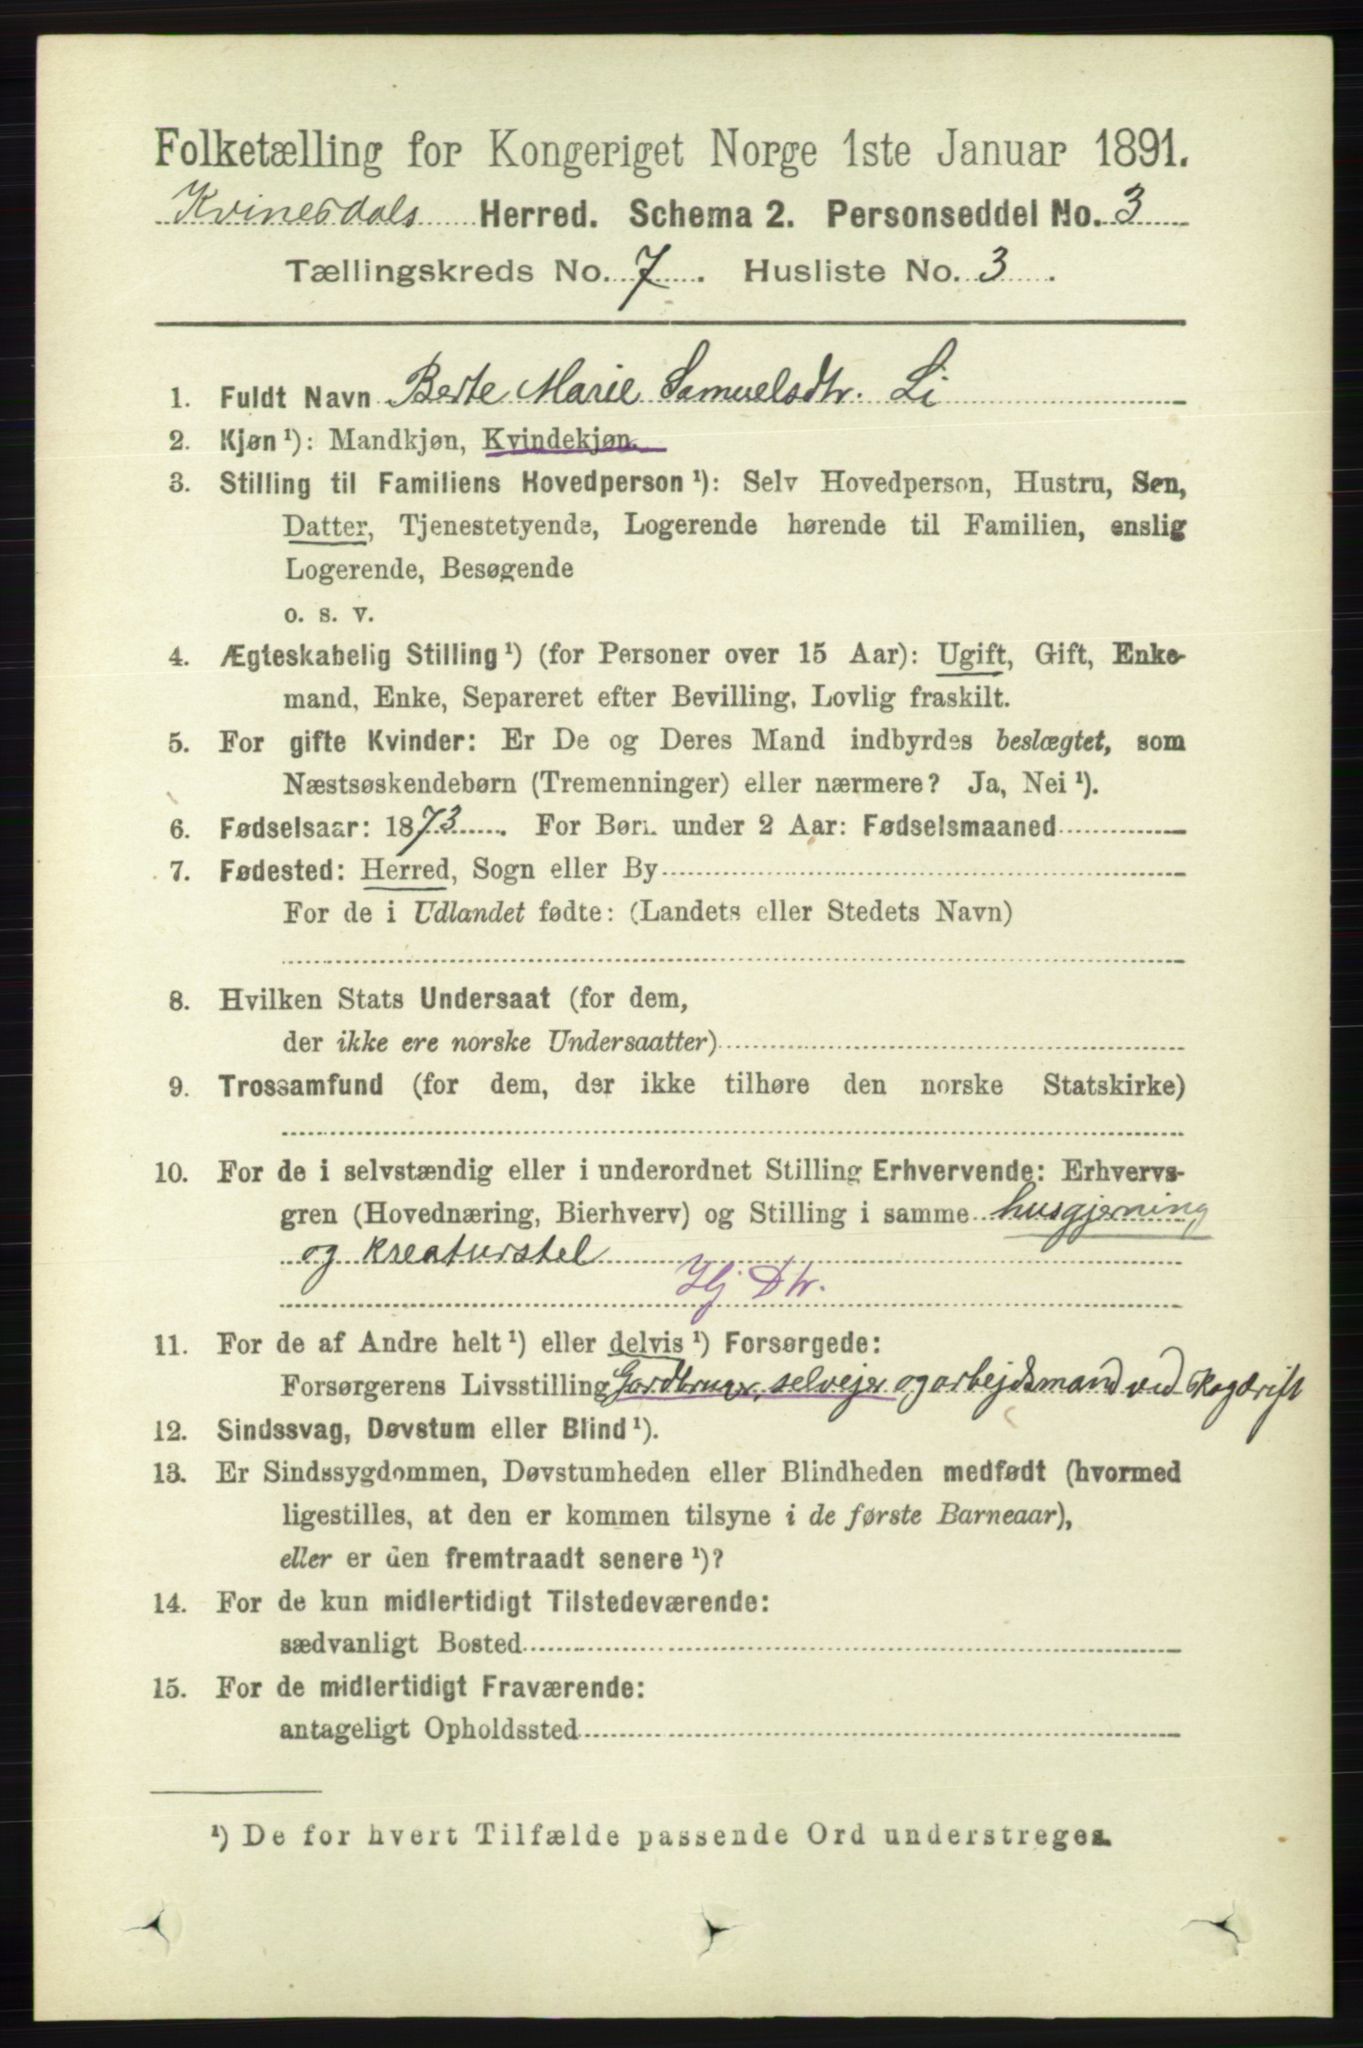 Folketælling for Kongeriget Norge 1ste Januar 1891.
Kvinesdals Herred. Schema 2. Personseddel No. 3
Tællingskreds No. 7. Husliste No. 3.
1. Fuldt Navn Berte Marie Samuelsdtr. Li
2. Kjøn ¹): Mandkjøn, Kvindekjøn.
3. Stilling til Familiens Hovedperson ¹): Selv Hovedperson, Hustru, Søn,
Datter, Tjenestetyende, Logerende hørende til Familien, enslig
Logerende, Besøgende
o. s. v.
4. Ægteskabelig Stilling ¹) (for Personer over 15 Aar): Ugift, Gift, Enke-
mand, Enke, Separeret efter Bevilling, Lovlig fraskilt.
5. For gifte Kvinder: Er De og Deres Mand indbyrdes beslægtet, som
Næstsøskendebørn (Tremenninger) eller nærmere? Ja, Nei ¹).
6. Fødselsaar: 1873. For Børn under 2 Aar: Fødselsmaaned
7. Fødested: Herred, Sogn eller By
For de i Udlandet fødte: (Landets eller Stedets Navn)
8. Hvilken Stats Undersaat (for dem,
der ikke ere norske Undersaatter)
9. Trossamfund (for dem, der ikke tilhøre den norske Statskirke)
10. For de i selvstændig eller i underordnet Stilling Erhvervende: Erhvervs-
gren (Hovednæring, Bierhverv) og Stilling i samme husgjerning
og kreaturstel
Hj Dtr.
11. For de af Andre helt ¹) eller delvis ¹) Forsørgede:
Forsørgerens Livsstilling Gardbruger, selvejer og arbejdsmand ved skogdrift
12. Sindssvag, Døvstum eller Blind ¹).
13. Er Sindssygdommen, Døvstumheden eller Blindheden medfødt (hvormed
ligestilles, at den er kommen tilsyne i de første Barneaar),
eller er den fremtraadt senere ¹)?
14. For de kun midlertidigt Tilstedeværende:
sædvanligt Bosted
15. For de midlertidigt Fraværende:
antageligt Opholdssted
¹) De for hvert Tilfælde passende Ord understreges.